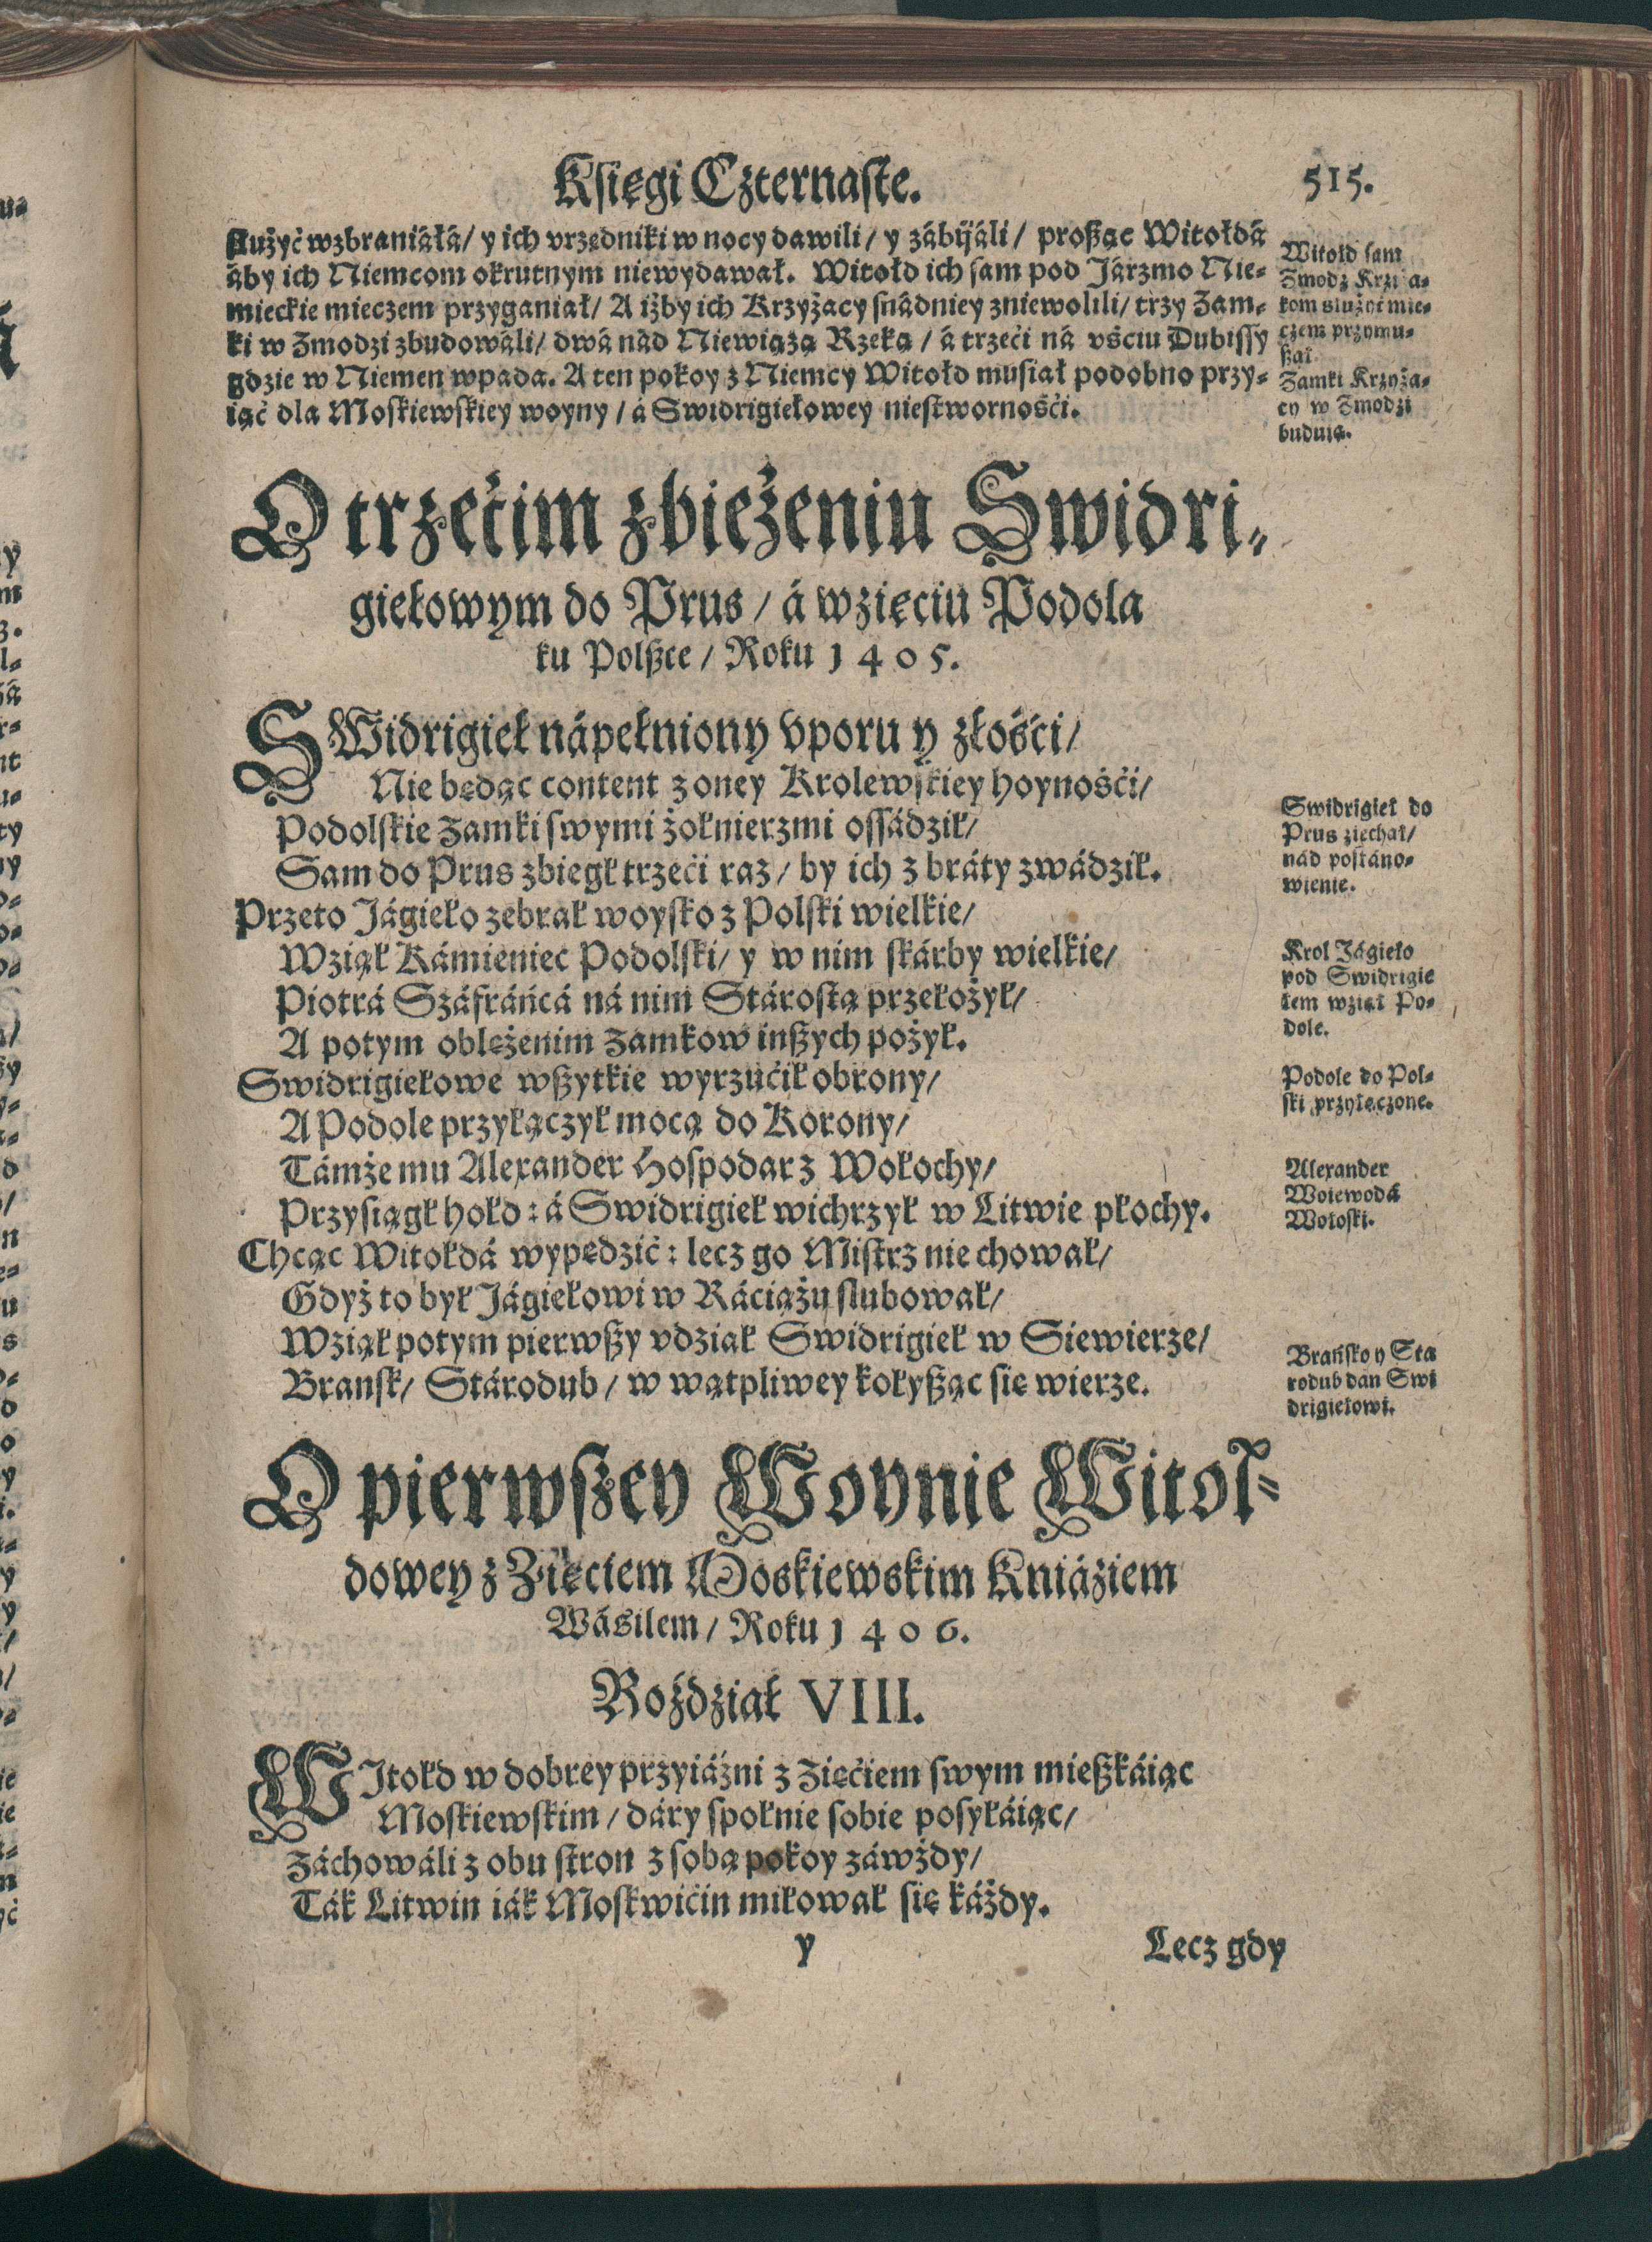 Księgi Czternaste.
515.
służyć wzbraniáłá / y ich vrzędniki w nocy dawili / y zábijáli / proßąc Witołdá
áby ich Niemcom okrutnym niewydawał. Witołd ich sam pod Járzmo Nie-
mieckie mieczem przyganiał / A iżby ich Krzyżacy snádniey zniewolili / trzy Zam-
ki w Zmodzi zbudowáli / dwá nád Niewiążą Rzeką / á trzeći ná vśćiu Dubissy
gdzie w Niemen wpada. A ten pokoy z Niemcy Witołd musiał podobno przy-
iąć dla Moskiewskiey woyny / á Swidrigiełowey niestwornośći.
Witołd sam
Zmodź Krzyża-
kom służyć mie-
czem przymu-
ßał
Zamki Krzyża-
cy w Zmodzi
buduią.
O trzećim zbieżeniu Swidri-
giełowym do Prus / á wzięciu Podola
ku Polßce / Roku 1405.
SWidrigieł nápełniony vporu y złośći /
Nie będąc content z oney Krolewskiey hoynośći /
Podolskie Zamki swymi żołnierzmi ossádził /
Sam do Prus zbiegł trzeći raz / by ich z bráty zwádził.
Przeto Jágieło zebrał woysko z Polski wielkie /
Wziął Kámieniec Podolski / y w nim skárby wielkie /
Piotrá Száfráńcá ná nim Stárostą przełożył /
A potym oblężenim Zamkow inßych pożył.
Swidrigiełowe wßytkie wyrzućił obrony /
A Podole przyłączył mocą do Korony /
Támże mu Alexander Hospodar z Wołochy /
Przysiągł hołd : á Swidrigieł wichrzył w Litwie płochy.
Chcąc Witołdá wypędzić : lecz go Mistrz nie chował /
Gdyż to był Jágiełowi w Ráciążu slubował /
Wziął potym pierwßy vdział Swidrigieł w Siewierze /
Bransk / Stárodub / w wątpliwey kołyßąc się wierze.
Swidrigieł do
Prus ziechał /
nád postáno-
wienie.
Krol Jágieło
pod Swidrigie
łem wziął Po-
dole.
Podole do Pol-
ski przyłączone.
Alexander
Woiewodá
Wołoski.
Brańsko y Sta
rodub dan Swi
drigiełowi.
O pierwßey Woynie Witoł-
dowey z Zięciem Moskiewskim Kniáziem
Wásilem / Roku 1406.
Rozdział VIII.
WJtołd w dobrey przyiáźni z Zięćiem swym mießkáiąc
Moskiewskim / dáry społnie sobie posyłáiąc /
Záchowáli z obu stron z sobą pokoy záwżdy /
Ták Litwin iák Moskwićin miłował się káżdy.
y
Lecz gdy